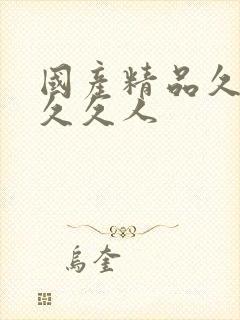 國產精品久
久久人
烏奎